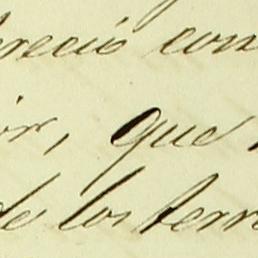 recio con
or, que
de los terre